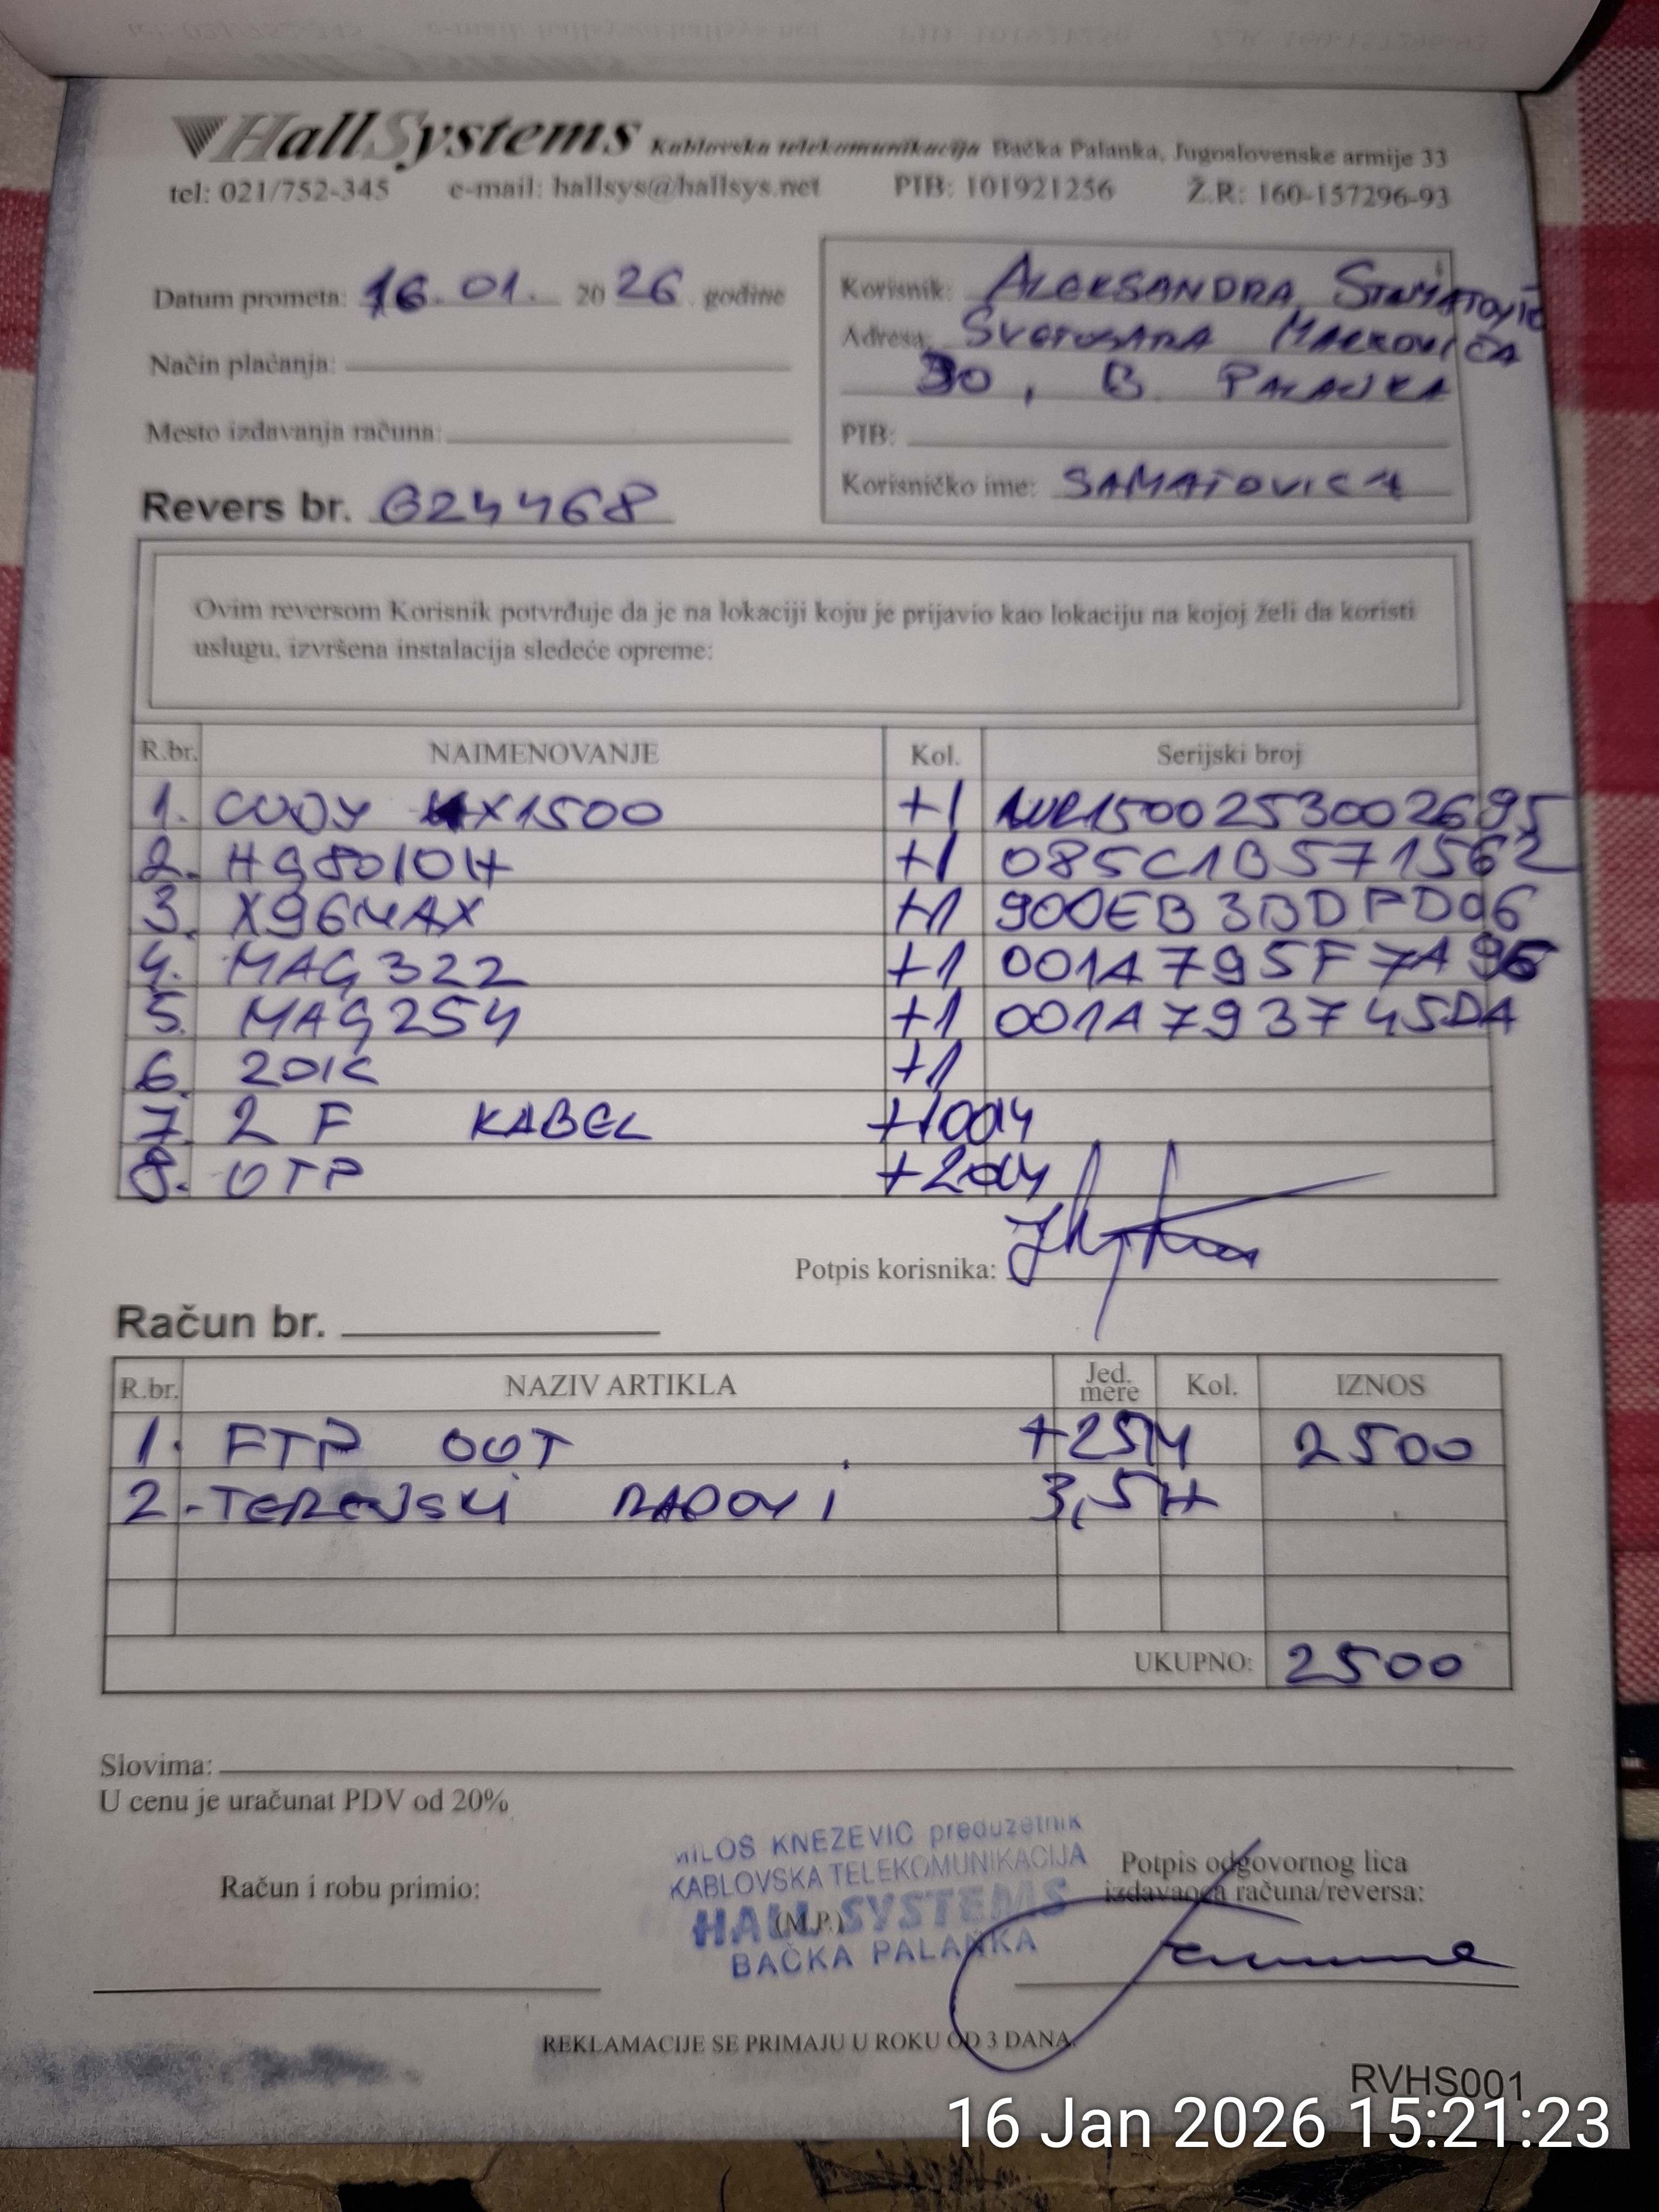 HallSystems Kablovska telekomunikacija Bačka Palanka, Jugoslovenske armije 33
tel: 021/752-345 e-mail: hallsys@hallsys.net PIB: 101921256 Ž.R: 160-157296-93
Datum prometa: 16. 01. 2026. godine
Način plaćanja:
Mesto izdavanja računa:
Revers br. 624468
Korisnik: ALEKSANDRA STAMATOVIĆ
Adresa: SVETOZARA MARKOVIĆA
30, B. PALANKA
PIB:
Korisničko ime: SAMATOVIC1
Ovim reversom Korisnik potvrđuje da je na lokaciji koju je prijavio kao lokaciju na kojoj želi da koristi
uslugu, izvršena instalacija sledeće opreme:
R.br. NAIMENOVANJE Kol. Serijski broj
1. CUDY X1500 +1 253002695
2. HG8010H +1 085C1B571562
3. X96MAX +1 900EB3BDFD06
4. MAG322 +1 001A795F7A96
5. MAG254 +1 001A793745DA
6. ZOIC +1
7. 2 F KABEL +100M
8. UTP +20M
Potpis korisnika:
Račun br.
R.br. NAZIV ARTIKLA Jed. mere Kol. IZNOS
1. FTP OUT +25M 2500
2. TERENSKI RADOVI 3,5H
UKUPNO: 2500
Slovima:
U cenu je uračunat PDV od 20%
MILOS KNEZEVIC preduzetnik
KABLOVSKA TELEKOMUNIKACIJA
HALL SYSTEMS
BAČKA PALANKA
Račun i robu primio:
(M.P.)
Potpis odgovornog lica
izdavaoca računa/reversa:
REKLAMACIJE SE PRIMAJU U ROKU OD 3 DANA.
RVHS001
16 Jan 2026 15:21:23